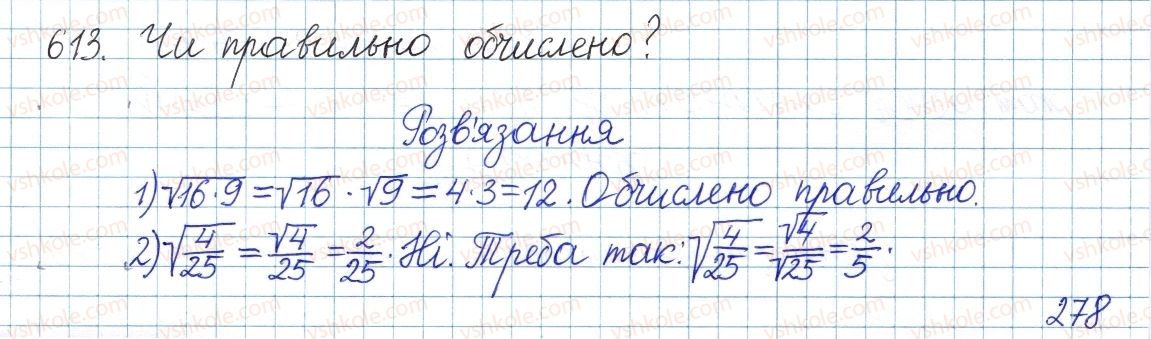 613. Чи правильно обчислено?
Розв'язання
1) √16·9 = √16 · √9 = 4·3 = 12. Обчислено правильно.
2) √(4/25) = √4/25 = 2/25. Ні. Треба так: √(4/25) = √4/√25 = 2/5.
278